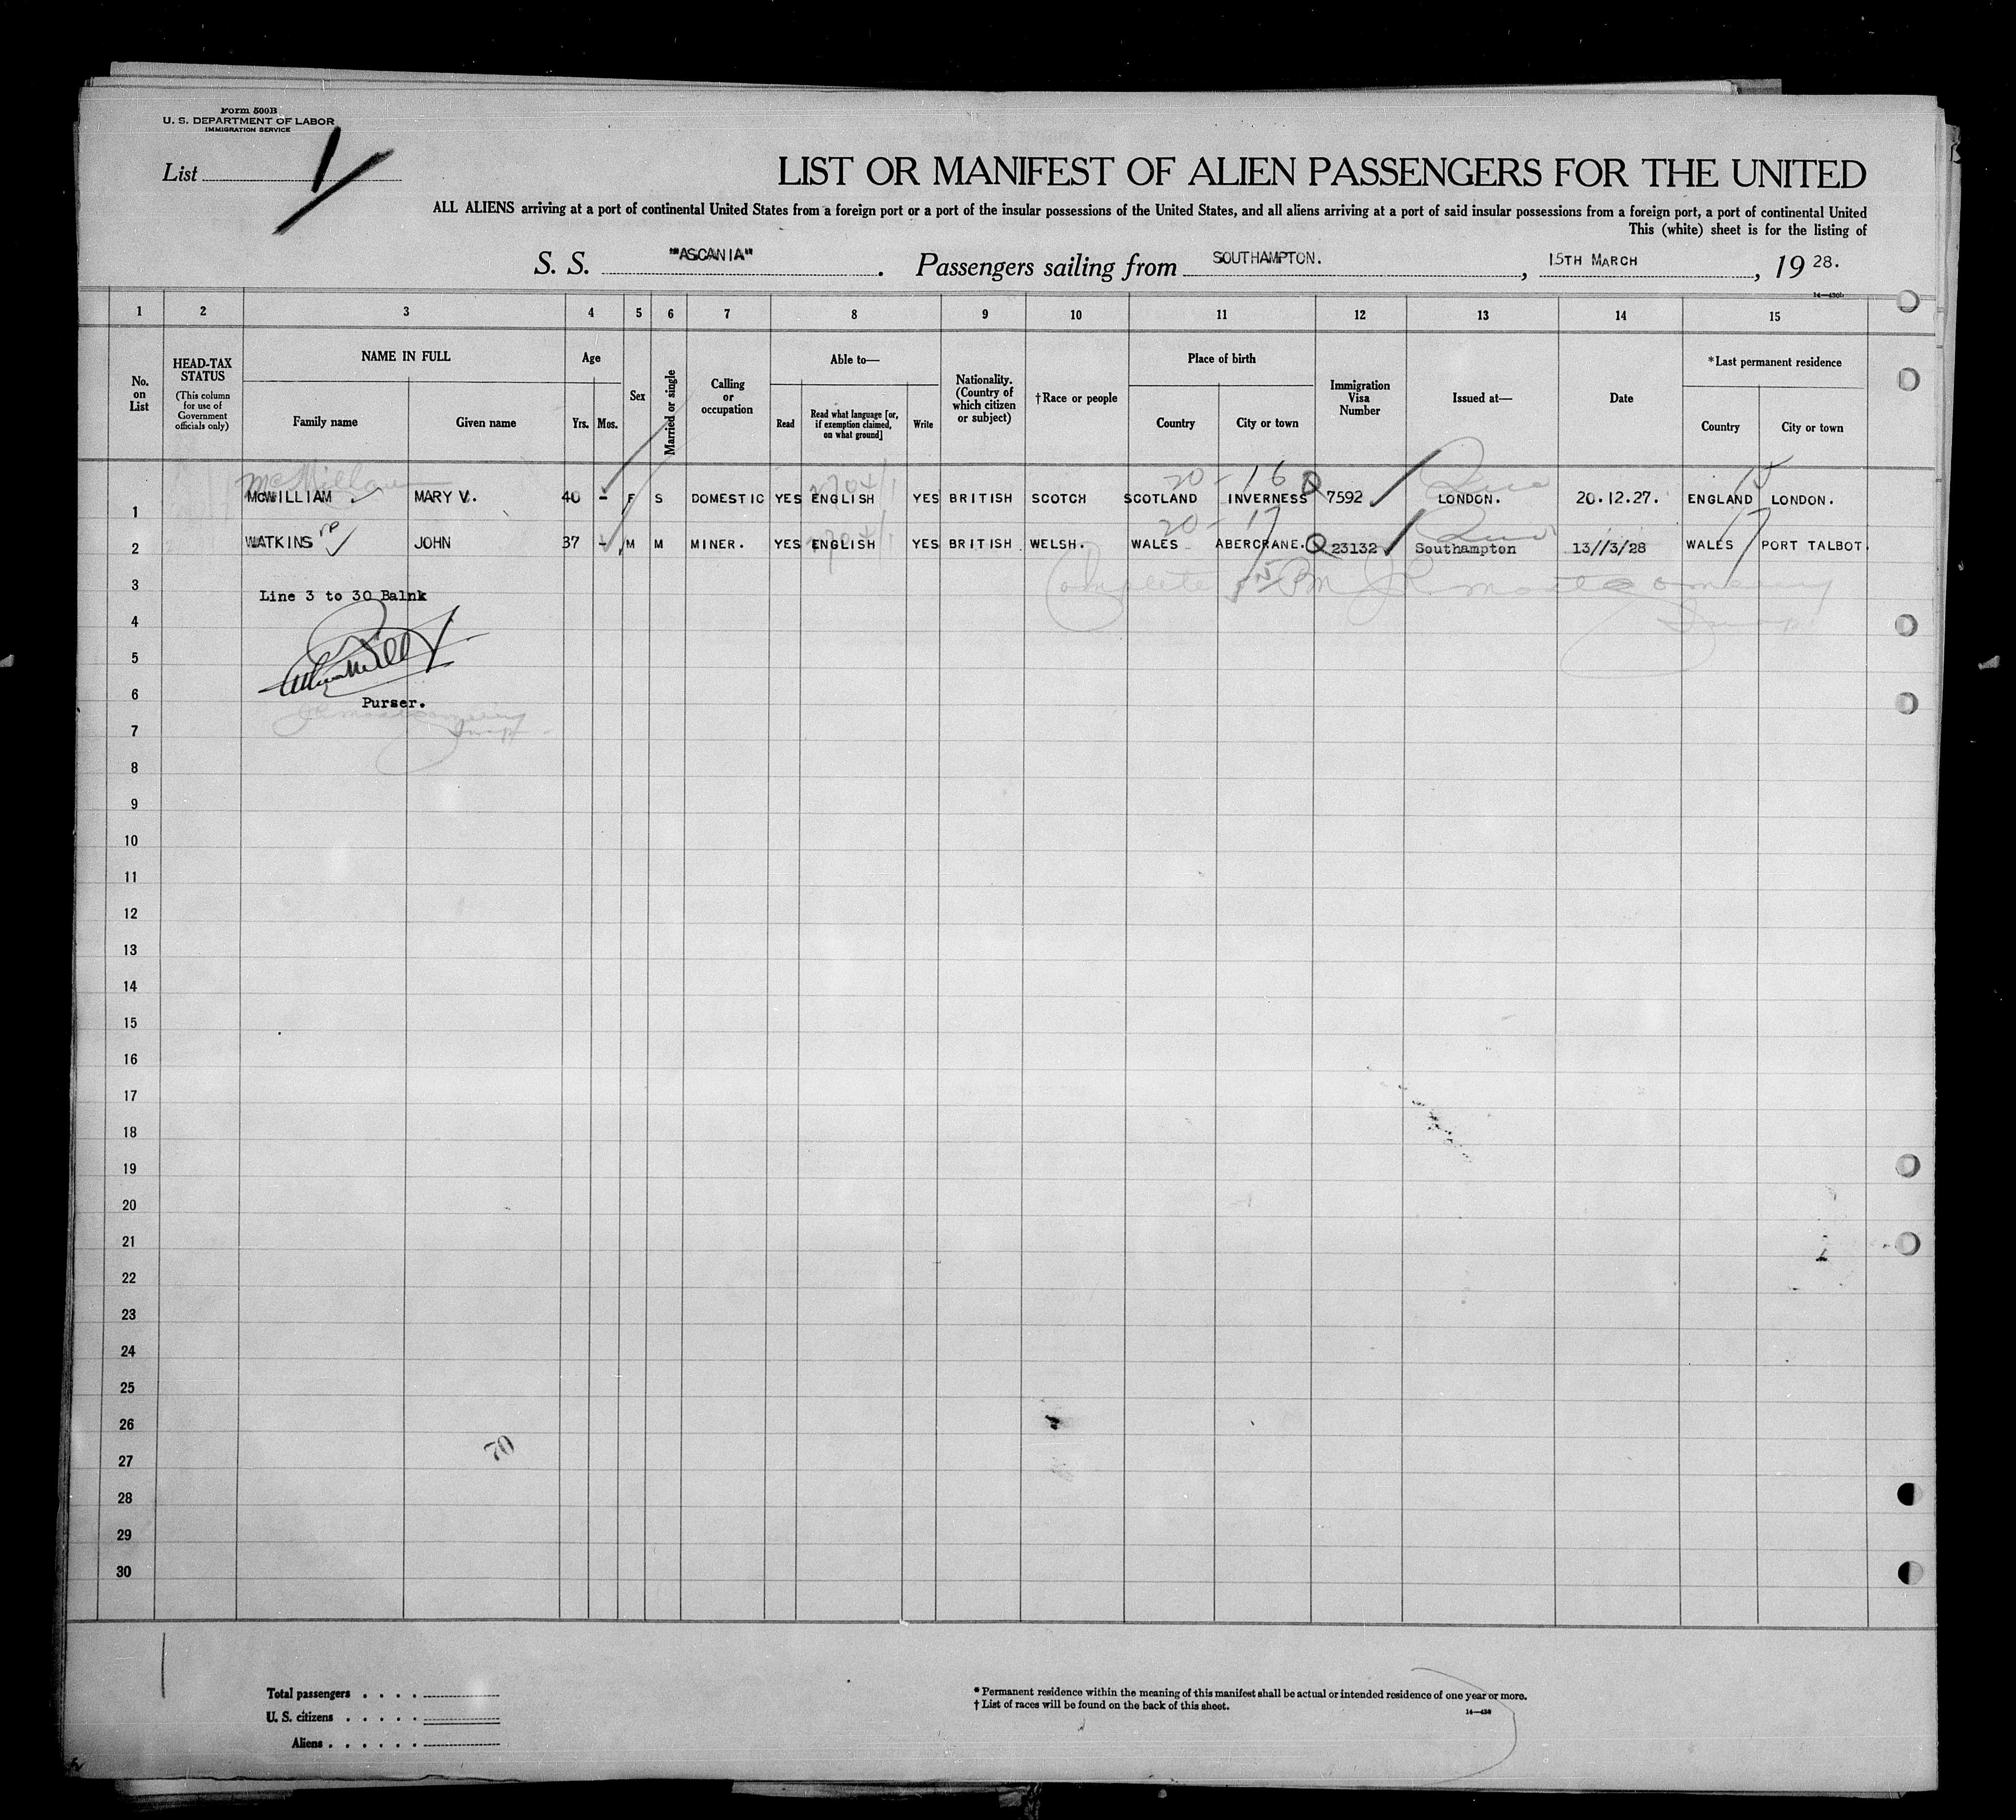 Form 500B
U. S. DEPARTMENT OF LABOR
IMMIGRATION SERVICE
List 1
LIST OR MANIFEST OF ALIEN PASSENGERS FOR THE UNITED
ALL ALIENS arriving at a port of continental United States from a foreign port or a port of the insular possessions of the United States, and all aliens arriving at a port of said insular possessions from a foreign port, a port of continental United
This (white) sheet is for the listing of
S. S. "ASCANIA". Passengers sailing from SOUTHAMPTON., 15TH MARCH, 19 28.
1 2 3 4 5 6 7 8 9 10 11 12 13 14 15
No. on List
HEAD-TAX STATUS
(This column for use of Government officials only)
NAME IN FULL
Family name Given name
Age
Yrs. Mos.
Sex
Married or single
Calling or occupation
Able to—
Read
Read what language [or, if exemption claimed, on what ground]
Write
Nationality. (Country of which citizen or subject)
†Race or people
Place of birth
Country City or town
Immigration Visa Number
Issued at—
Date
*Last permanent residence
Country City or town
McMillan 20 - 16 15
1 McWILLIAM MARY V. 40 - F S DOMESTIC YES ENGLISH YES BRITISH SCOTCH SCOTLAND INVERNESS Q 7592 LONDON. 20.12.27. ENGLAND LONDON.
20 - 17 17
2 WATKINS JOHN 37 - M M MINER. YES ENGLISH YES BRITISH WELSH. WALES ABERCRANE. Q 23132 Southampton 13//3/28 WALES PORT TALBOT.
3 Line 3 to 30 Balnk
Complete
4
5
6 Purser.
7
8
9
10
11
12
13
14
15
16
17
18
19
20
21
22
23
24
25
26
70
27
28
29
30
Total passengers . . . .
U. S. citizens . . . . .
Aliens . . . . . .
* Permanent residence within the meaning of this manifest shall be actual or intended residence of one year or more.
† List of races will be found on the back of this sheet.